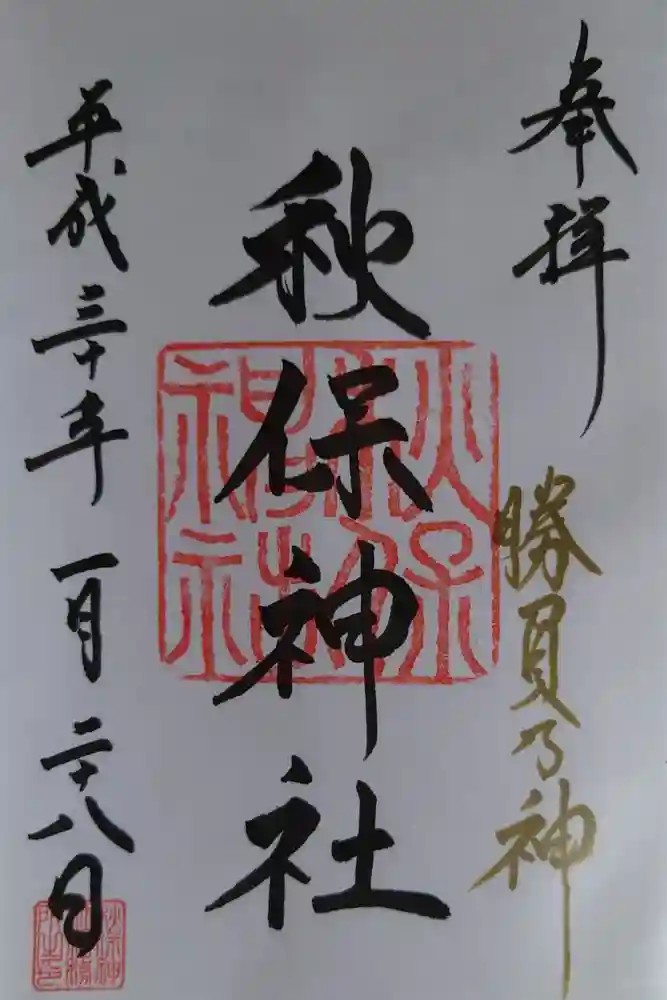 奉拝
勝負乃神
秋保神社
平成三十年一月二十八日
秋保
神社